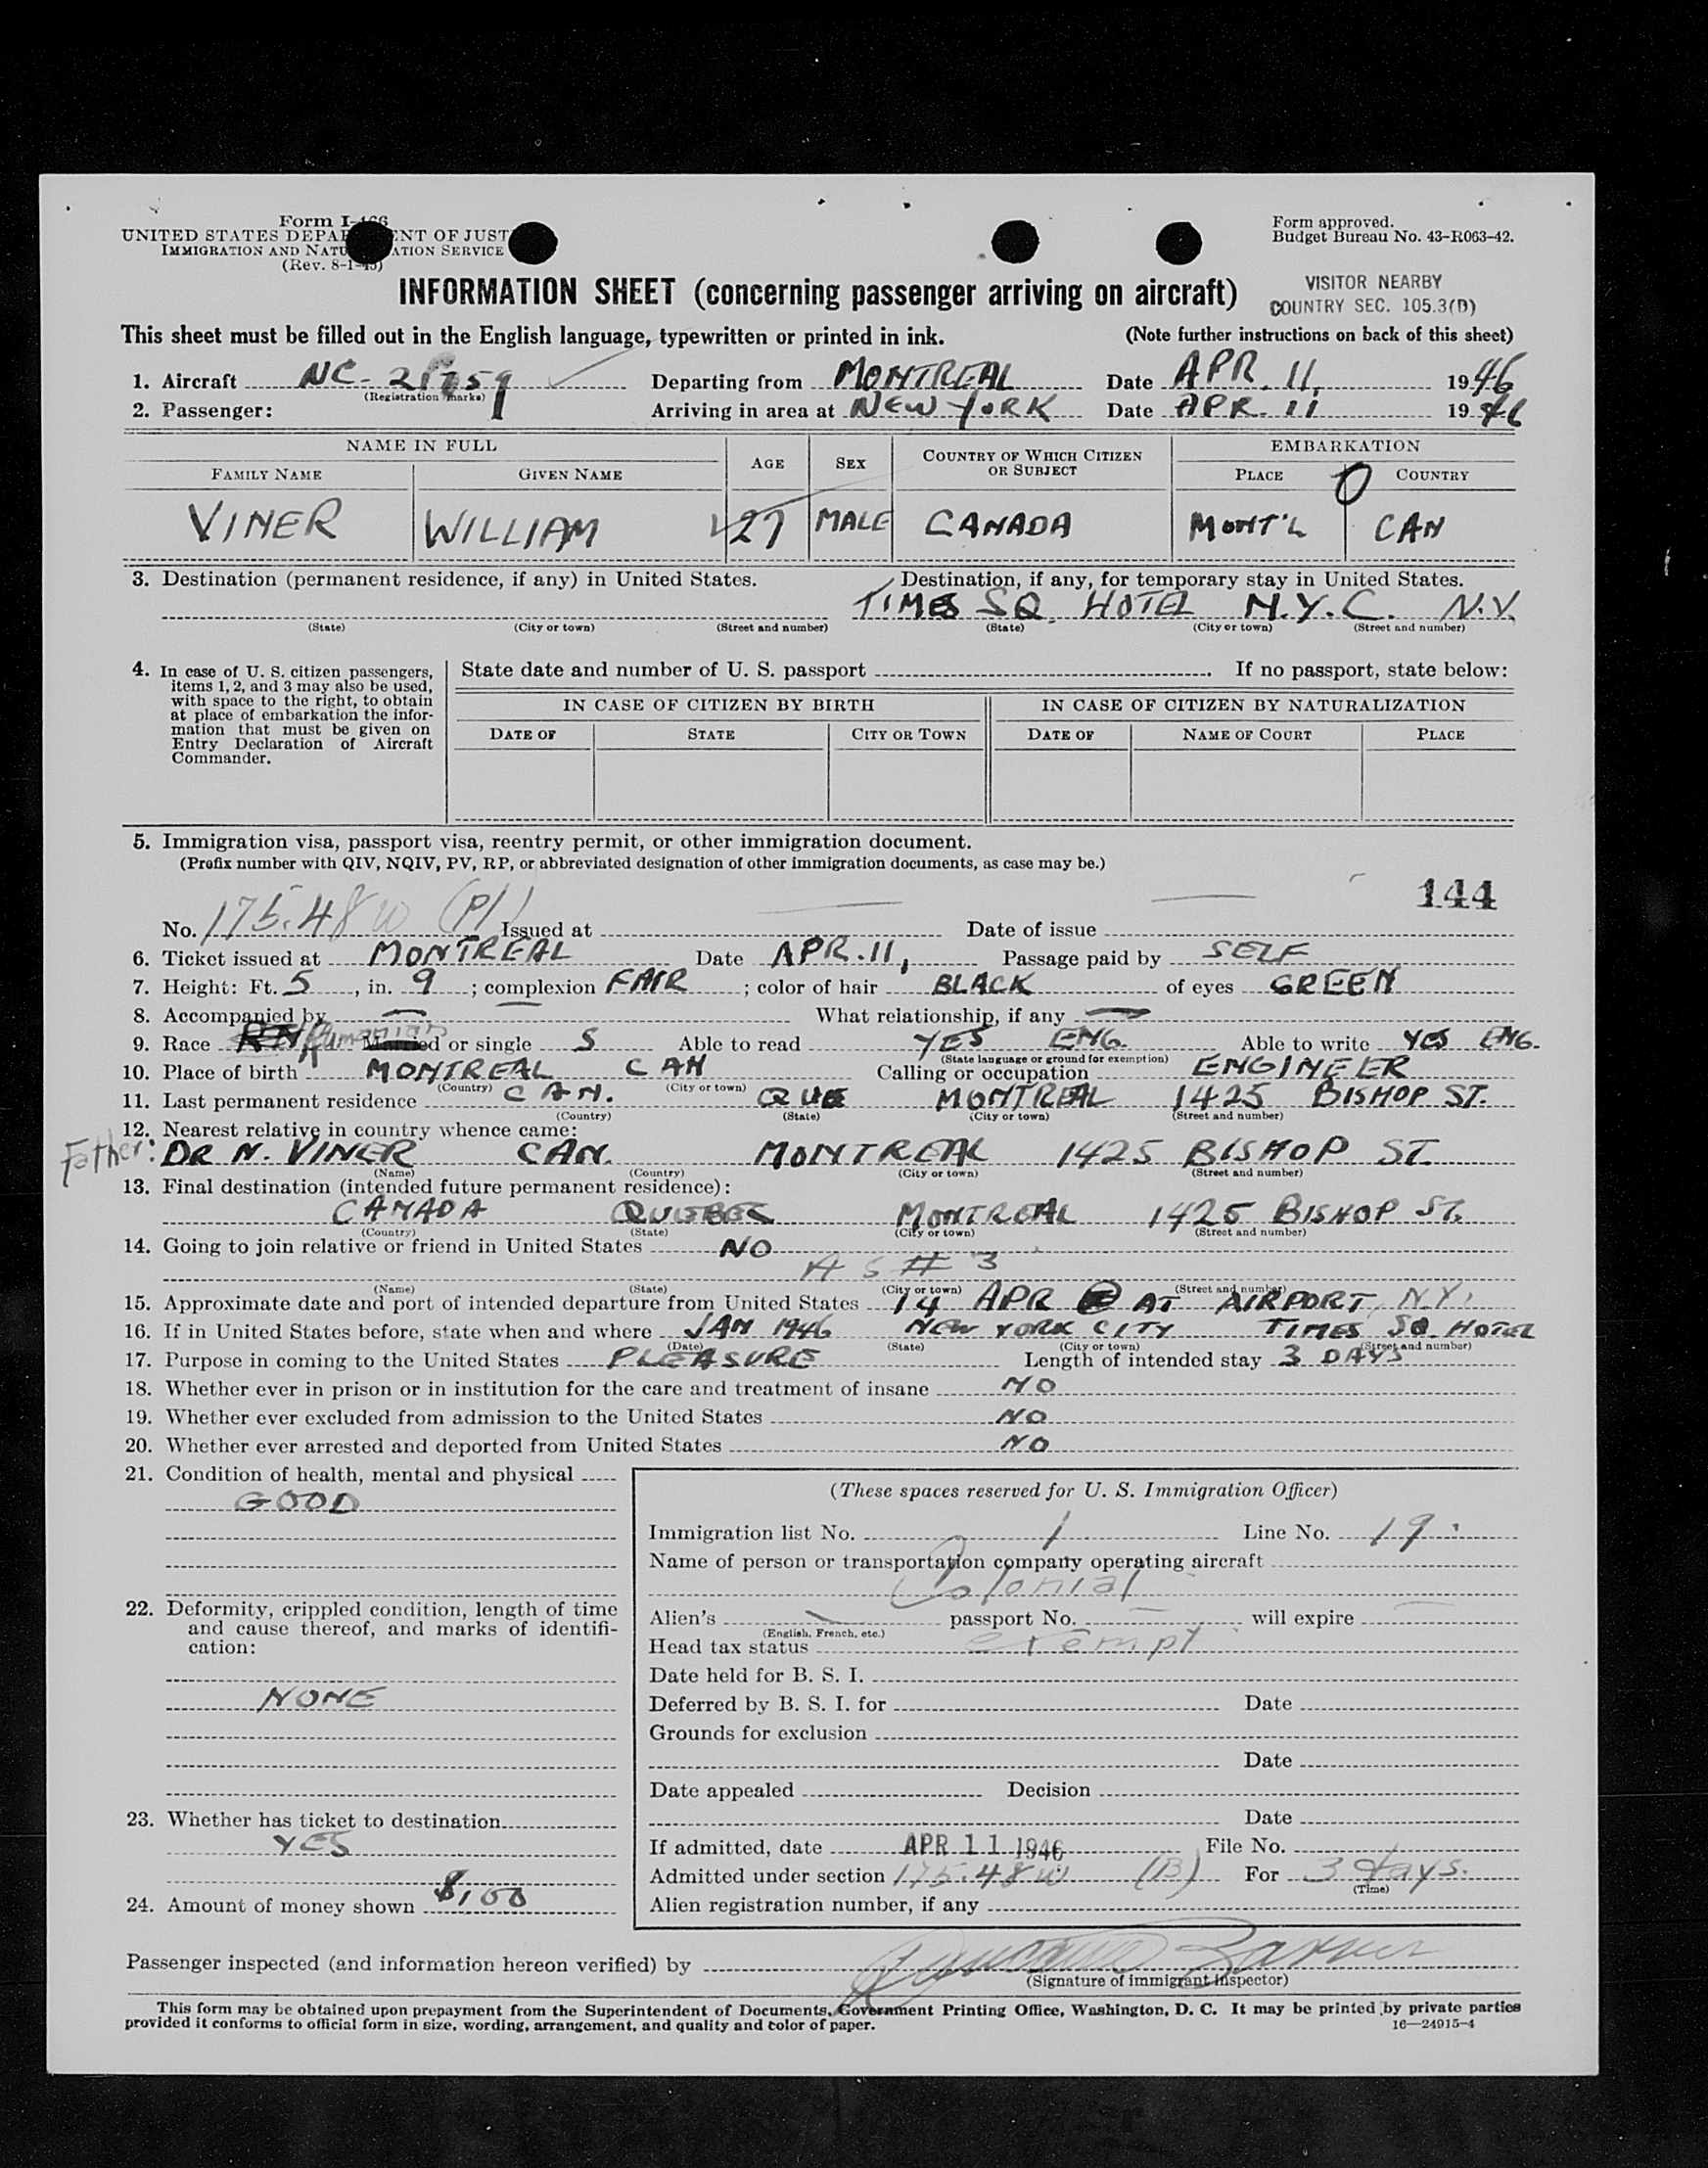 Form I-466
UNITED STATES DEPARTMENT OF JUSTICE
IMMIGRATION AND NATURALIZATION SERVICE
(Rev. 8-1-45)
Form approved.
Budget Bureau No. 43-R063-42.
INFORMATION SHEET (concerning passenger arriving on aircraft)
VISITOR NEARBY
COUNTRY SEC. 105.3(B)
This sheet must be filled out in the English language, typewritten or printed in ink. (Note further instructions on back of this sheet)
1. Aircraft NC- Departing from MONTREAL Date APR. 11, 1946
(Registration marks)
2. Passenger: Arriving in area at NEW YORK Date APR. 11 1946
NAME IN FULL AGE SEX COUNTRY OF WHICH CITIZEN OR SUBJECT EMBARKATION
FAMILY NAME GIVEN NAME PLACE COUNTRY
VINER WILLIAM 27 MALE CANADA MONT'L CAN
3. Destination (permanent residence, if any) in United States. Destination, if any, for temporary stay in United States.
TIMES SQ. HOTEL N.Y.C. N.Y.
(State) (City or town) (Street and number) (State) (City or town) (Street and number)
4. In case of U. S. citizen passengers, items 1, 2, and 3 may also be used, with space to the right, to obtain at place of embarkation the information that must be given on Entry Declaration of Aircraft Commander.
State date and number of U. S. passport If no passport, state below:
IN CASE OF CITIZEN BY BIRTH IN CASE OF CITIZEN BY NATURALIZATION
DATE OF STATE CITY OR TOWN DATE OF NAME OF COURT PLACE
5. Immigration visa, passport visa, reentry permit, or other immigration document.
(Prefix number with QIV, NQIV, PV, RP, or abbreviated designation of other immigration documents, as case may be.)
144
No. 175.48 Issued at Date of issue
6. Ticket issued at MONTREAL Date APR. 11, Passage paid by SELF
7. Height: Ft. 5, in. 9; complexion FAIR; color of hair BLACK of eyes GREEN
8. Accompanied by — What relationship, if any —
9. Race Rumanian Married or single S Able to read YES ENG. Able to write YES ENG.
(State language or ground for exemption)
10. Place of birth MONTREAL CAN Calling or occupation ENGINEER
(Country) (City or town)
11. Last permanent residence CAN. QUE MONTREAL 1425 BISHOP ST.
(Country) (State) (City or town) (Street and number)
12. Nearest relative in country whence came:
Father: DR N. VINER CAN. MONTREAL 1425 BISHOP ST.
(Name) (Country) (City or town) (Street and number)
13. Final destination (intended future permanent residence):
CANADA QUEBEC MONTREAL 1425 BISHOP ST.
(Country) (State) (City or town) (Street and number)
14. Going to join relative or friend in United States NO
AS # 3
(Name) (State) (City or town) (Street and number)
15. Approximate date and port of intended departure from United States 14 APR AT AIRPORT, N.Y.
16. If in United States before, state when and where JAN 1946 NEW YORK CITY TIMES SQ. HOTEL
(Date) (State) (City or town) (Street and number)
17. Purpose in coming to the United States PLEASURE Length of intended stay 3 DAYS
18. Whether ever in prison or in institution for the care and treatment of insane NO
19. Whether ever excluded from admission to the United States NO
20. Whether ever arrested and deported from United States NO
21. Condition of health, mental and physical
GOOD
22. Deformity, crippled condition, length of time and cause thereof, and marks of identification:
NONE
23. Whether has ticket to destination
YES
24. Amount of money shown $100
(These spaces reserved for U. S. Immigration Officer)
Immigration list No. 1 Line No. 19
Name of person or transportation company operating aircraft
Colonial
Alien's passport No. will expire
(English, French, etc.)
Head tax status exempt
Date held for B. S. I.
Deferred by B. S. I. for Date
Grounds for exclusion
Date
Date appealed Decision
Date
If admitted, date APR 11 1946 File No.
Admitted under section 175.48 W (B) For 3 days.
(Time)
Alien registration number, if any
Passenger inspected (and information hereon verified) by
(Signature of immigrant inspector)
This form may be obtained upon prepayment from the Superintendent of Documents, Government Printing Office, Washington, D. C. It may be printed by private parties
provided it conforms to official form in size, wording, arrangement, and quality and color of paper. 16—24915-4